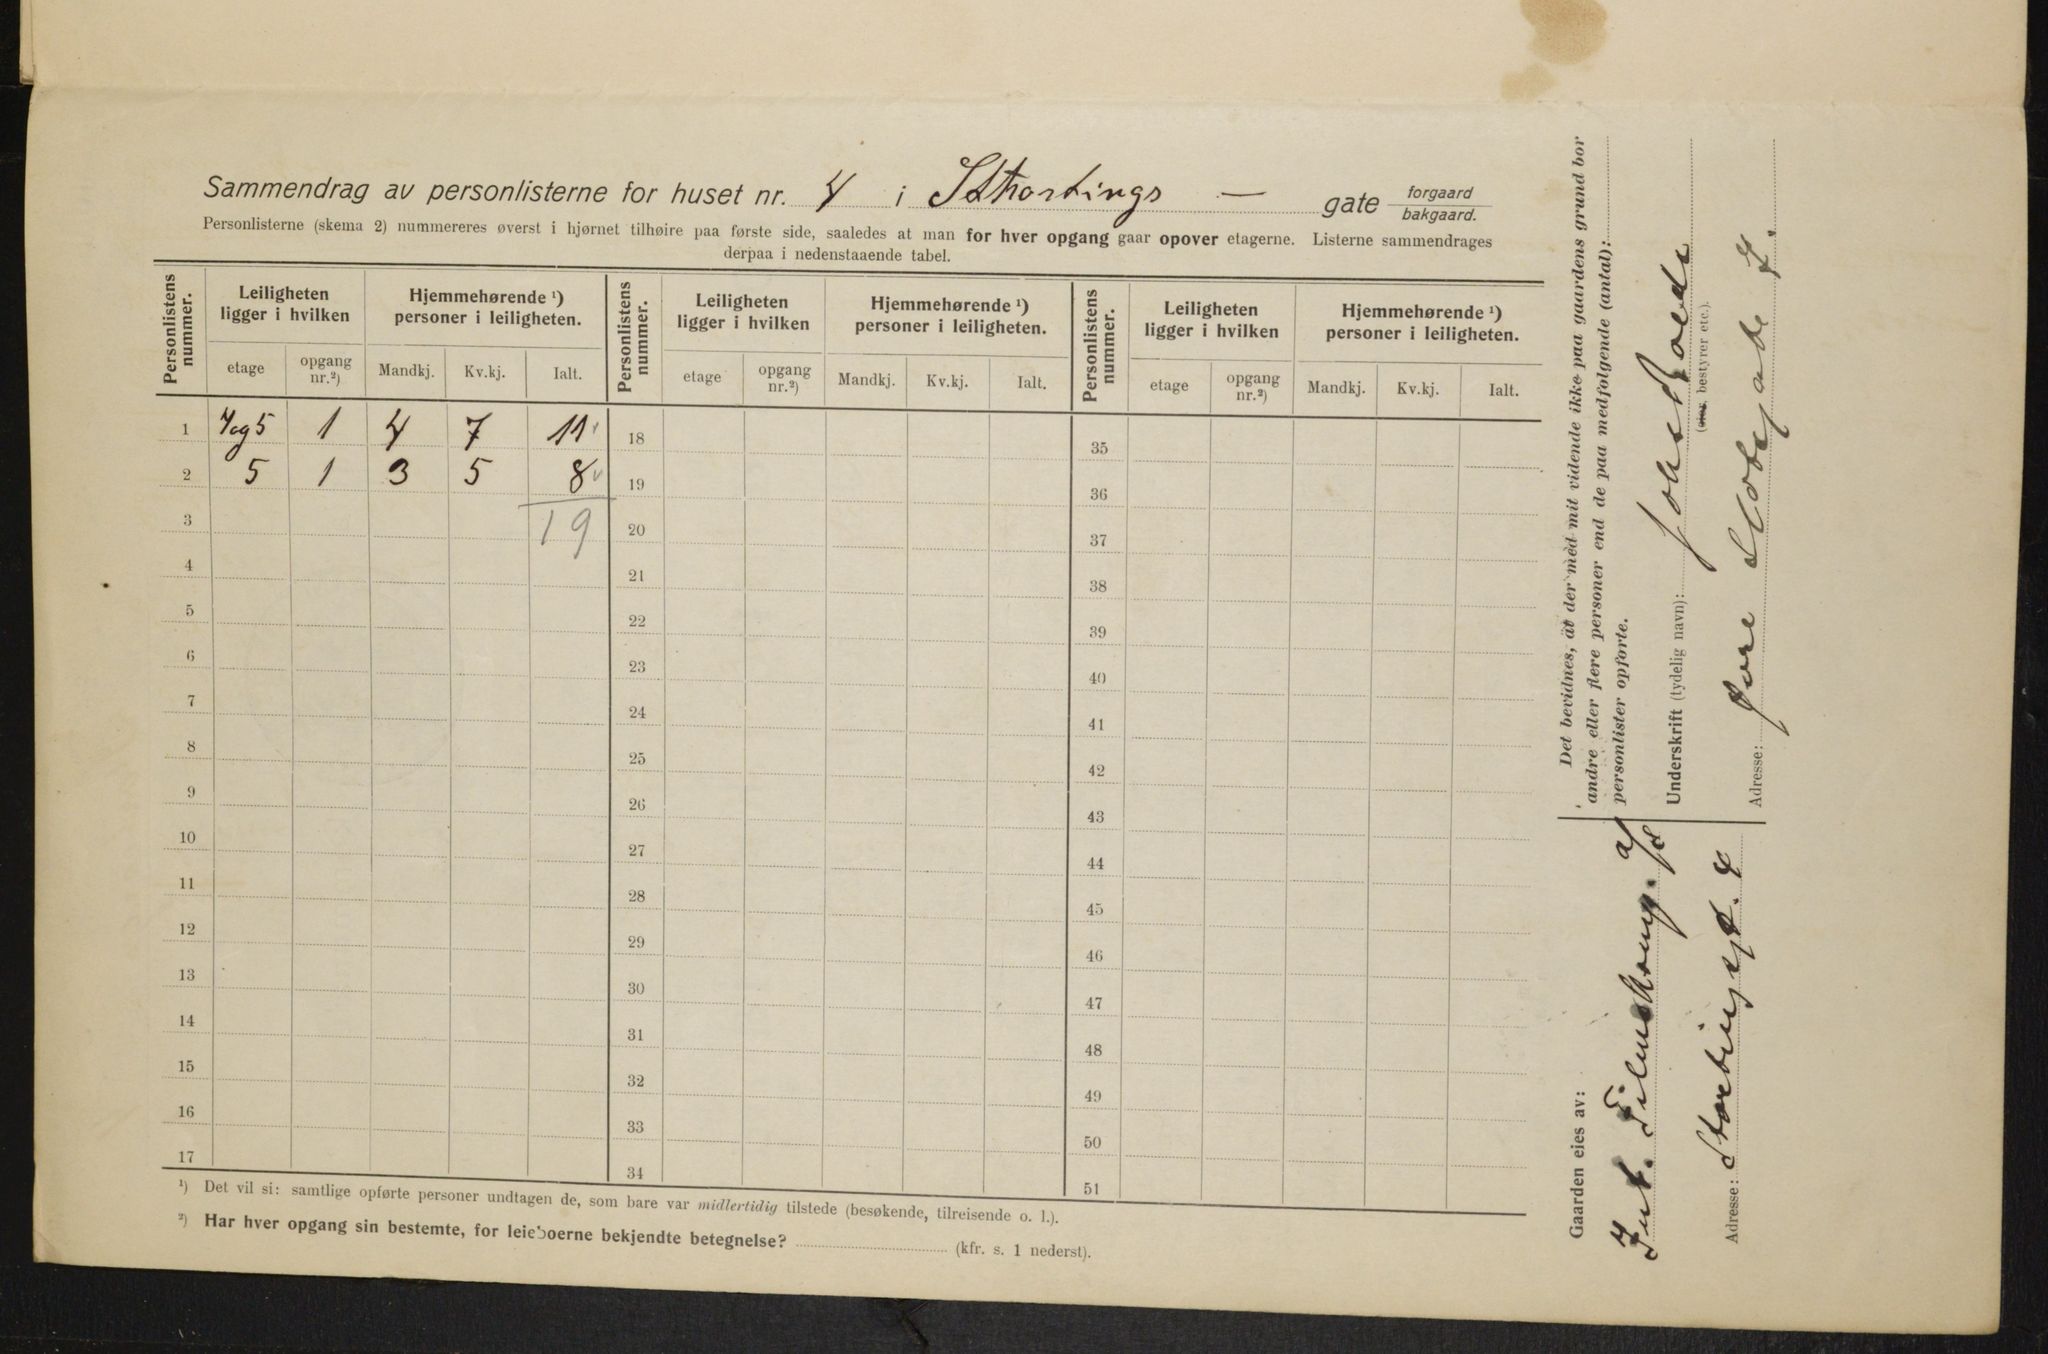 Sammendrag av personlisterne for huset nr. 4 i Sthortings — gate forgaard
bakgaard.
Personlisterne (skema 2) nummereres øverst i hjørnet tilhøire paa første side, saaledes at man for hver opgang gaar opover etagerne. Listerne sammendrages
derpaa i nedenstaaende tabel.
Personlistens nummer. Leiligheten ligger i hvilken Hjemmehørende ¹) personer i leiligheten. Personlistens nummer. Leiligheten ligger i hvilken Hjemmehørende ¹) personer i leiligheten. Personlistens nummer. Leiligheten ligger i hvilken Hjemmehørende ¹) personer i leiligheten.
etage opgang nr.²) Mandkj. Kv.kj. Ialt. etage opgang nr.²) Mandkj. Kv.kj. Ialt. etage opgang nr.²) Mandkj. Kv.kj. Ialt.
1 4og5 1 4 7 11 18 35
2 5 1 3 5 8 19 36
3 19 20 37
4 21 38
5 22 39
6 23 40
7 24 41
8 25 42
9 26 43
10 27 44
11 28 45
12 29 46
13 30 47
14 31 48
15 32 49
16 33 50
17 34 51
¹) Det vil si: samtlige opførte personer undtagen de, som bare var midlertidig tilstede (besøkende, tilreisende o. l.).
²) Har hver opgang sin bestemte, for leieboerne bekjendte betegnelse? (kfr. s. 1 nederst).
Det bevidnes, at der med mit vidende ikke paa gaardens grund bor
andre eller flere personer end de paa medfølgende (antal):
personlister opførte.
Underskrift (tydelig navn):
(eier, bestyrer etc.).
Adresse: Øvre Slotsgade 7.
Gaarden eies av:
Int. Filmskomp. a/s
Adresse: Stortingsgt. 4